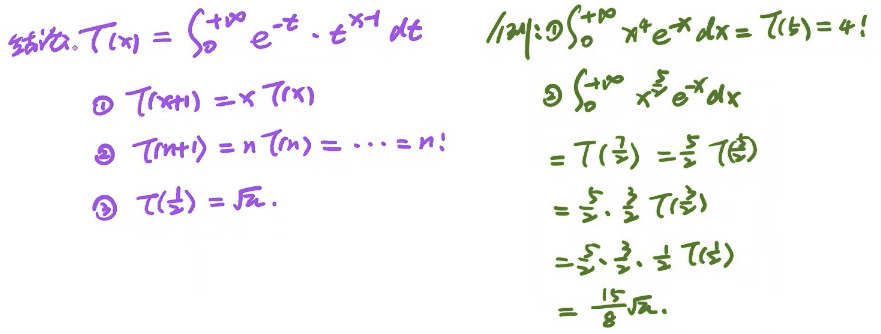 结论. Γ(x) = ∫₀^{+∞} e^{-t} · t^{x-1} dt
① Γ(x+1) = x Γ(x)
② Γ(n+1) = n Γ(n) = ⋯ = n!
③ Γ(1/2) = √π.
例: ① ∫₀^{+∞} x⁴ e^{-x} dx = Γ(5) = 4!
② ∫₀^{+∞} x^{5/2} e^{-x} dx
= Γ(7/2) = 5/2 Γ(5/2)
= 5/2 · 3/2 Γ(3/2)
= 5/2 · 3/2 · 1/2 Γ(1/2)
= 15/8 √π.